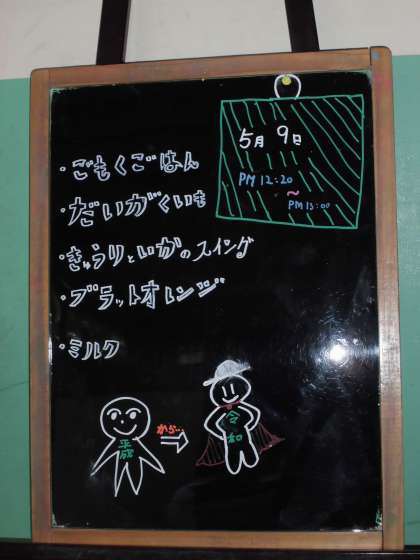 5月9日
PM 12:20
~
PM 13:00
・ごもくごはん
・だいがくいも
・きゅうりといかのスイング
・ブラットオレンジ
・ミルク
平成
から…
令和